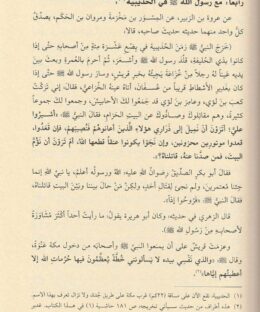 رابعاً: مع رسول الله ﷺ في الحديبية(١)
عن عروة بن الزبير، عن المِسْوَر بن مَخْرَمة ومروان بن الحَكَم، يصدِّقُ
كلُّ واحد منهما حديثَه حديث صاحبه، قالا:
خرج النبيُّ ﷺ زمنَ الحُدَيبية في بضع عشرة مئة من أصحابه حتى إذا
كانوا بذي الحُلَيفة، قَلَّد رسول الله ﷺ الهَدْيَ وأشعره، ثم أحرم بالعمرة وبعث بين
يديه عيناً له رجلاً من خُزاعة يجيئه بخبر قريش، وسار رسول الله ﷺ حتى إذا
كان بغدير الأشطاط قريباً من عُسفان، أتاه عينه الخزاعي، فقال: إني تركت
كعب بن لؤي، وعامر بن لؤي، قد جمعوا لك الأحابيش، وجمعوا لك جموعاً
كثيرة، وهم مقاتلوك وصادُّوك عن البيت الحرام، فقال النبي ﷺ: «أشيروا
عليَّ؛ أترون أن نميل إلى ذراري هؤلاء الذين أعانوهم فنُصيبهم، فإن قعدوا،
قعدوا موتورين محزونين، وإن نجوا يكونوا عنقاً قطعها الله، أم ترون أن نؤمَّ
البيت، فمن صدَّنا عنه، قاتلناه؟».
فقال أبو بكر الصدِّيق رضوان الله عليه: الله ورسوله أعلم، يا نبيَّ الله إنما
جئنا معتمرين، ولم نجئ لقتال أحد، ولكن من حال بيننا وبين البيت، قاتلناه».
قال الزهري في حديثه: وكان أبو هريرة يقول: ما رأيت أحداً أكثر مشاورة
لأصحابه من رسول الله ﷺ.
وعزمت قريش على أن يمنعوا النبيَّ ﷺ وأصحابه من دخول مكة عَنْوة،
فقال ﷺ: «والذي نفسي بيده لا يسألونني خُطَّةً يعظِّمون فيها حُرُمات الله إلا
أعطيتُهم إيَّاها(٢)».
(١) الحديبية: تقع الآن على مسافة (٢٢كم) غرب مكة على طريق جُدة، ولا تزال تعرف بهذا الاسم.
(٢) هذه أطراف، من حديث سيأتي تخريجه، ص ١٨١ حاشية (١) في هذا الكتاب. قدير